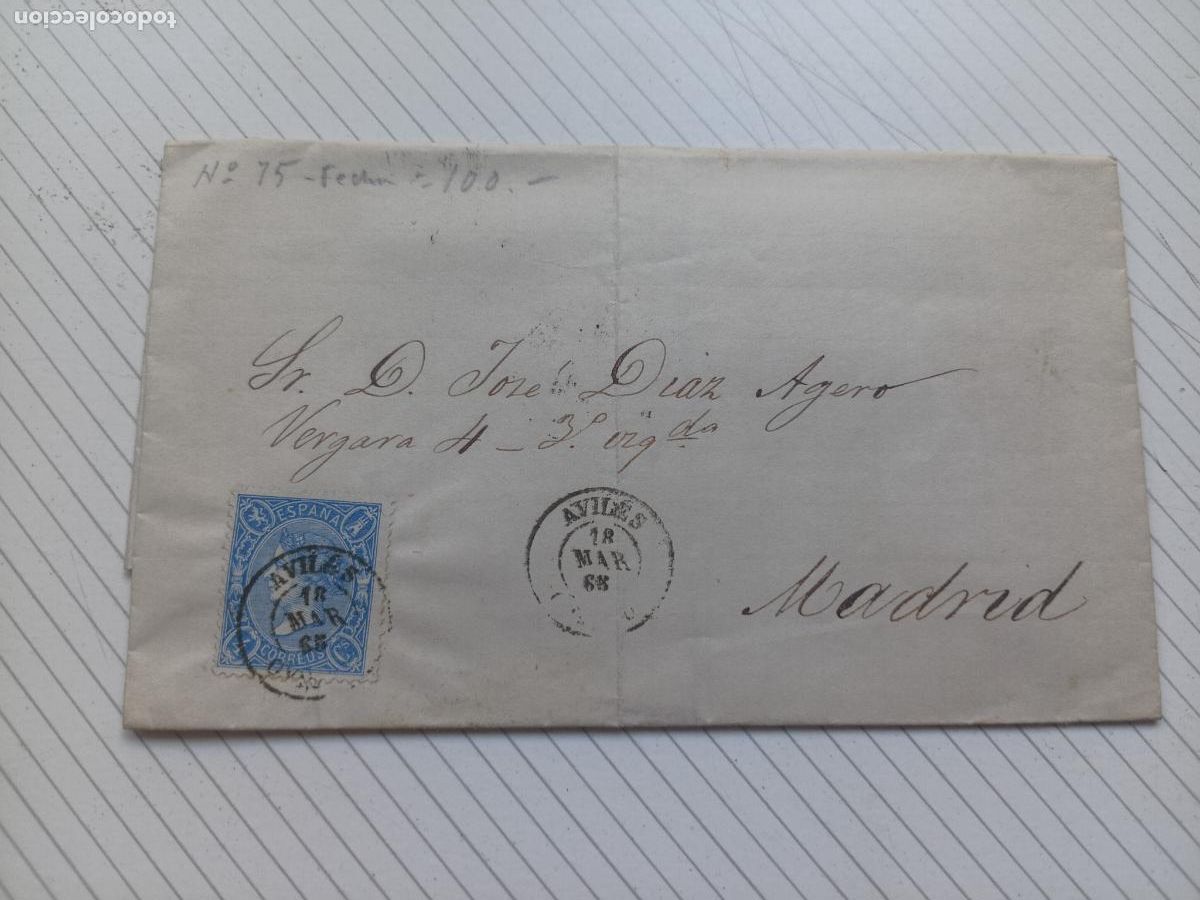 todocoleccion
Nº 75 - Fecha = 100.-
Sr. D. Jose Diaz Agero
Vergara 4 - 3º izqda
Madrid
AVILÉS
18
MAR
65
ESPAÑA
CORREOS
AVILÉS
18
MAR
65